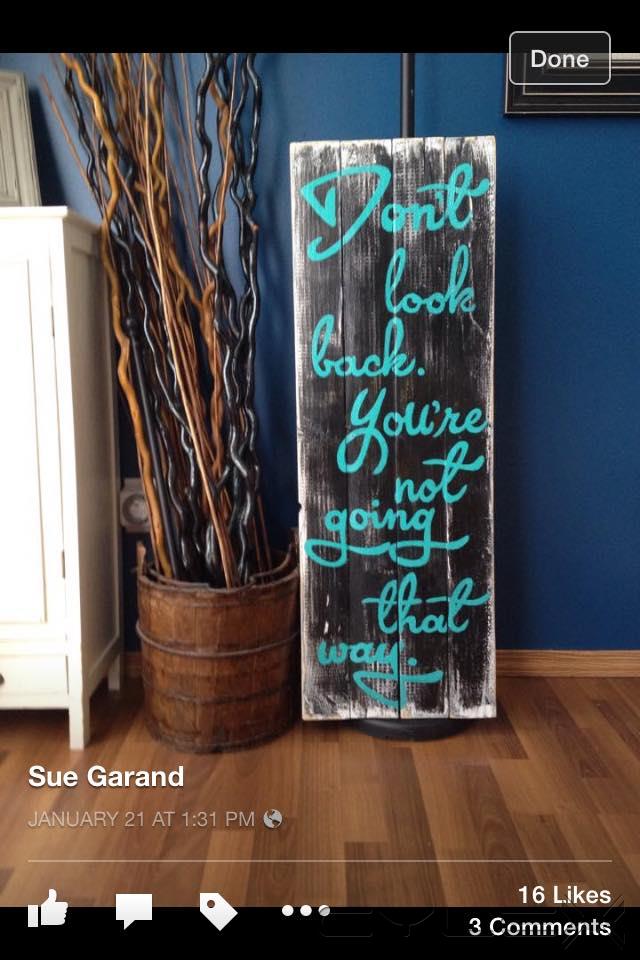 Done
Don't
look
back.
You're
not
going
that
way.
Sue Garand
JANUARY 21 AT 1:31 PM
16 Likes
3 Comments